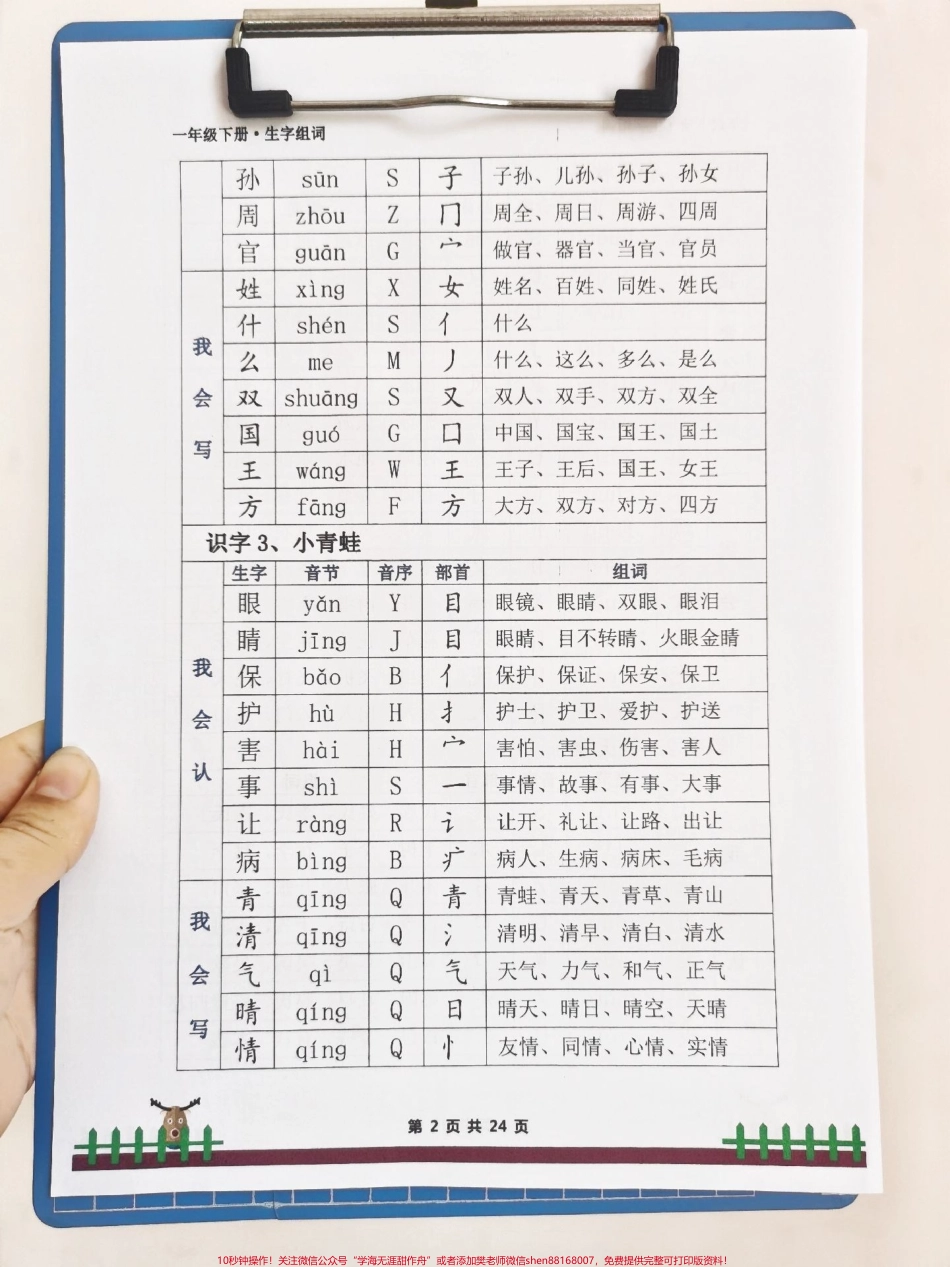 一年级下册·生字组词
孙 sūn S 子 子孙、儿孙、孙子、孙女
周 zhōu Z 冂 周全、周日、周游、四周
官 guān G 宀 做官、器官、当官、官员
我会写
姓 xìng X 女 姓名、百姓、同姓、姓氏
什 shén S 亻 什么
么 me M 丿 什么、这么、多么、是么
双 shuāng S 又 双人、双手、双方、双全
国 guó G 囗 中国、国宝、国王、国土
王 wáng W 王 王子、王后、国王、女王
方 fāng F 方 大方、双方、对方、四方
识字 3、小青蛙
生字 音节 音序 部首 组词
我会认
眼 yǎn Y 目 眼镜、眼睛、双眼、眼泪
睛 jīng J 目 眼睛、目不转睛、火眼金睛
保 bǎo B 亻 保护、保证、保安、保卫
护 hù H 扌 护士、护卫、爱护、护送
害 hài H 宀 害怕、害虫、伤害、害人
事 shì S 一 事情、故事、有事、大事
让 ràng R 讠 让开、礼让、让路、出让
病 bìng B 疒 病人、生病、病床、毛病
我会写
青 qīng Q 青 青蛙、青天、青草、青山
清 qīng Q 氵 清明、清早、清白、清水
气 qì Q 气 天气、力气、和气、正气
晴 qíng Q 日 晴天、晴日、晴空、天晴
情 qíng Q 忄 友情、同情、心情、实情
第 2 页 共 24 页
10秒钟操作！关注微信公众号“学海无涯甜作舟”或者添加樊老师微信shen88168007，免费提供完整可打印版资料！